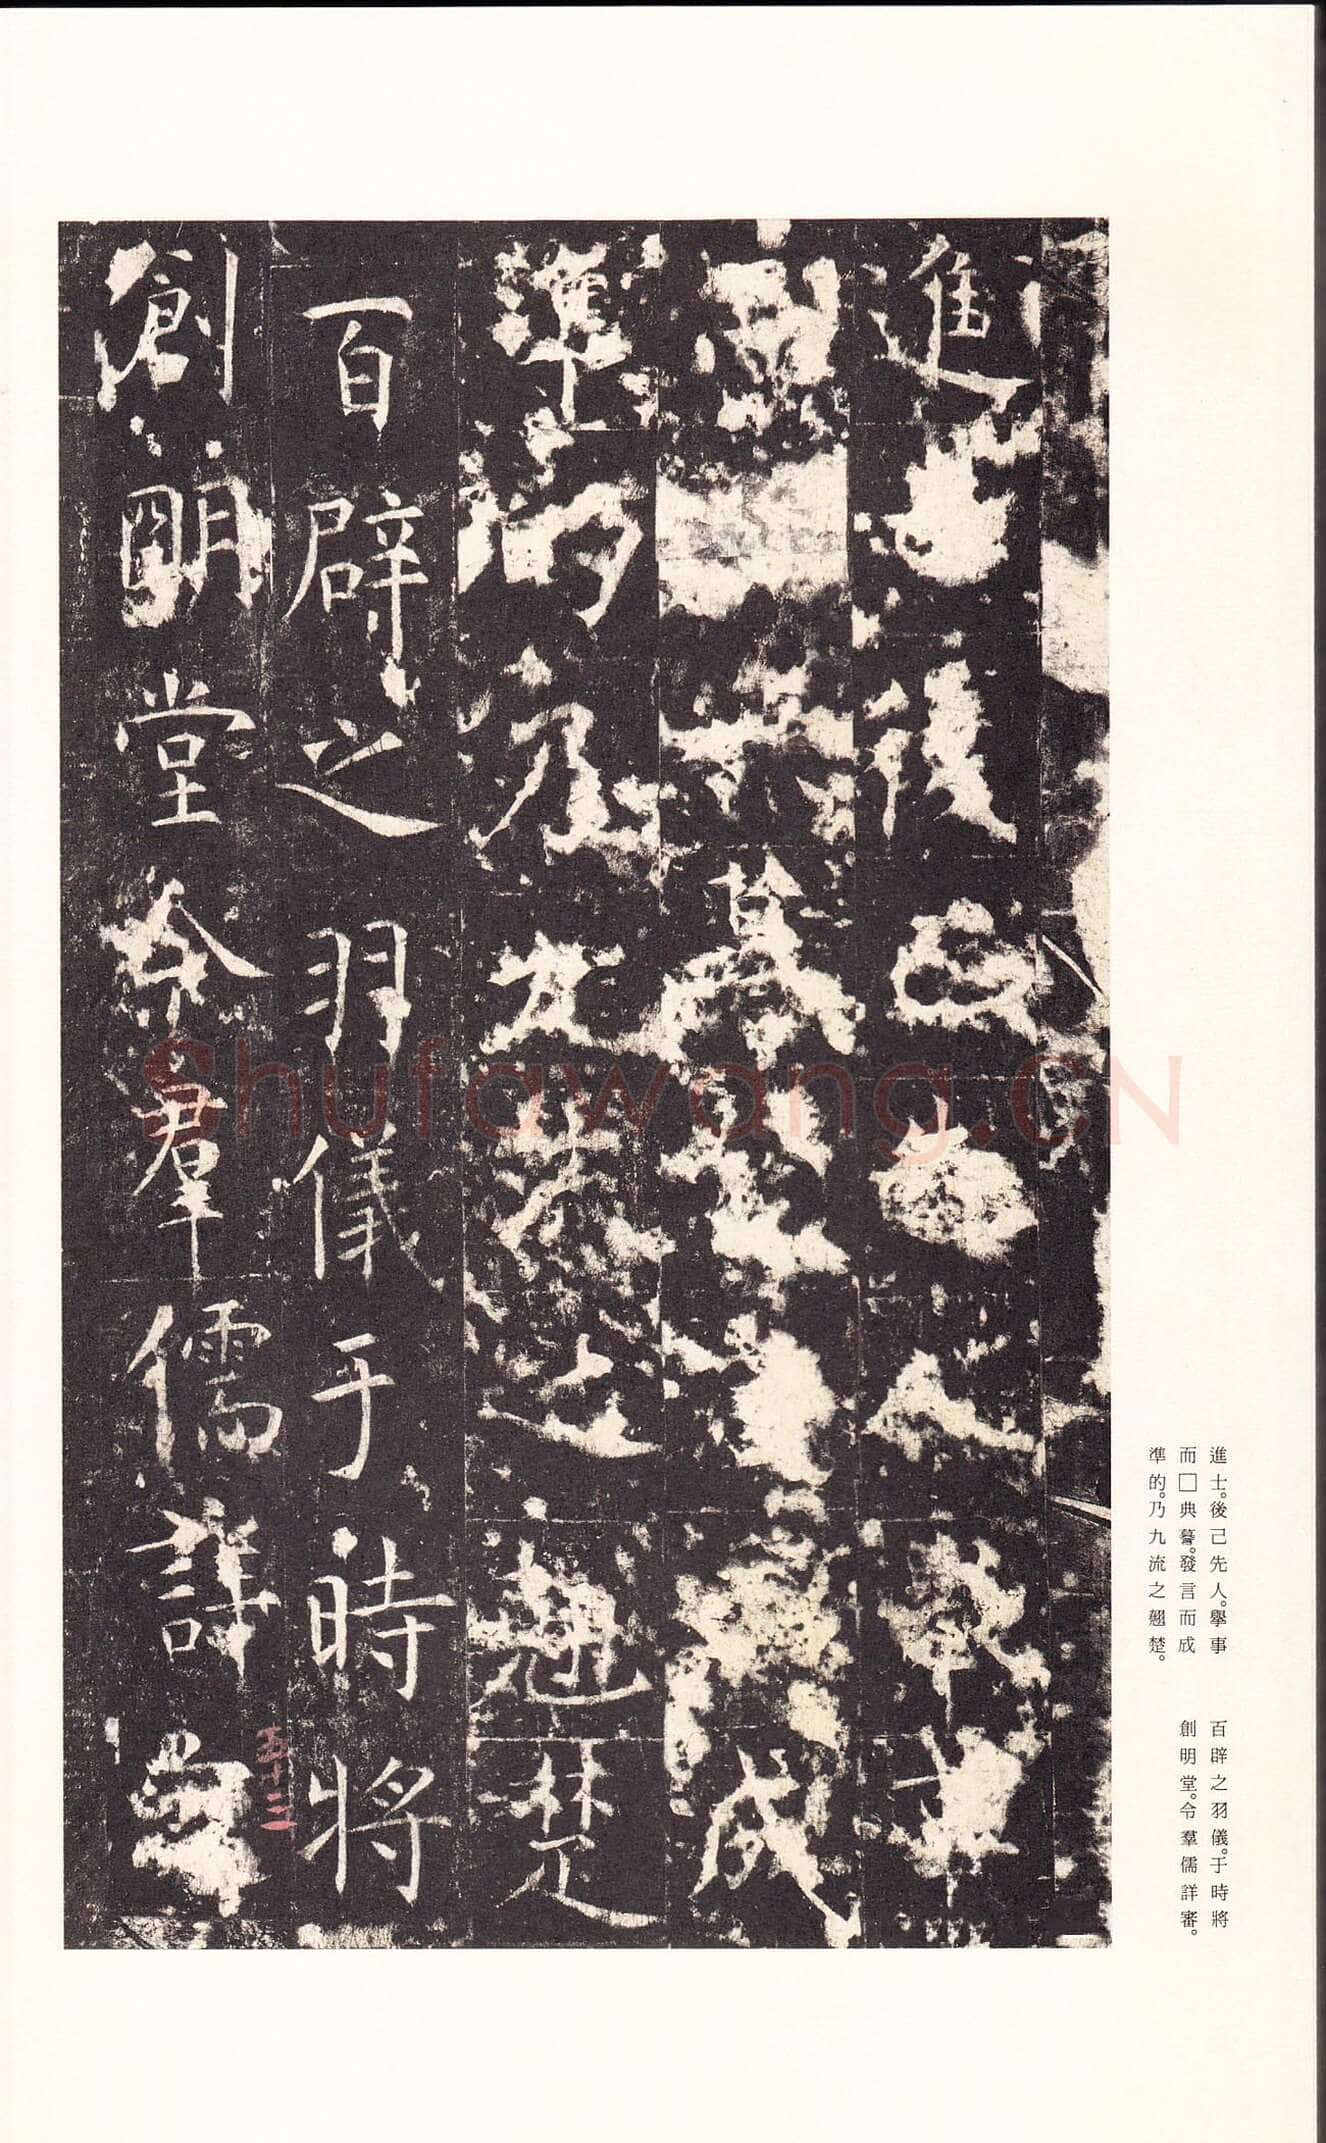 進士後己先人舉事
而典暮發言而成
準的乃九流之翹楚
百辟之羽儀于時將
創明堂令羣儒詳審
五十三
進士。後己先人。舉事
而□典謩。發言而成
準的。乃九流之翹楚。
百辟之羽儀。于時將
創明堂。令羣儒詳審。
Shufawang.CN